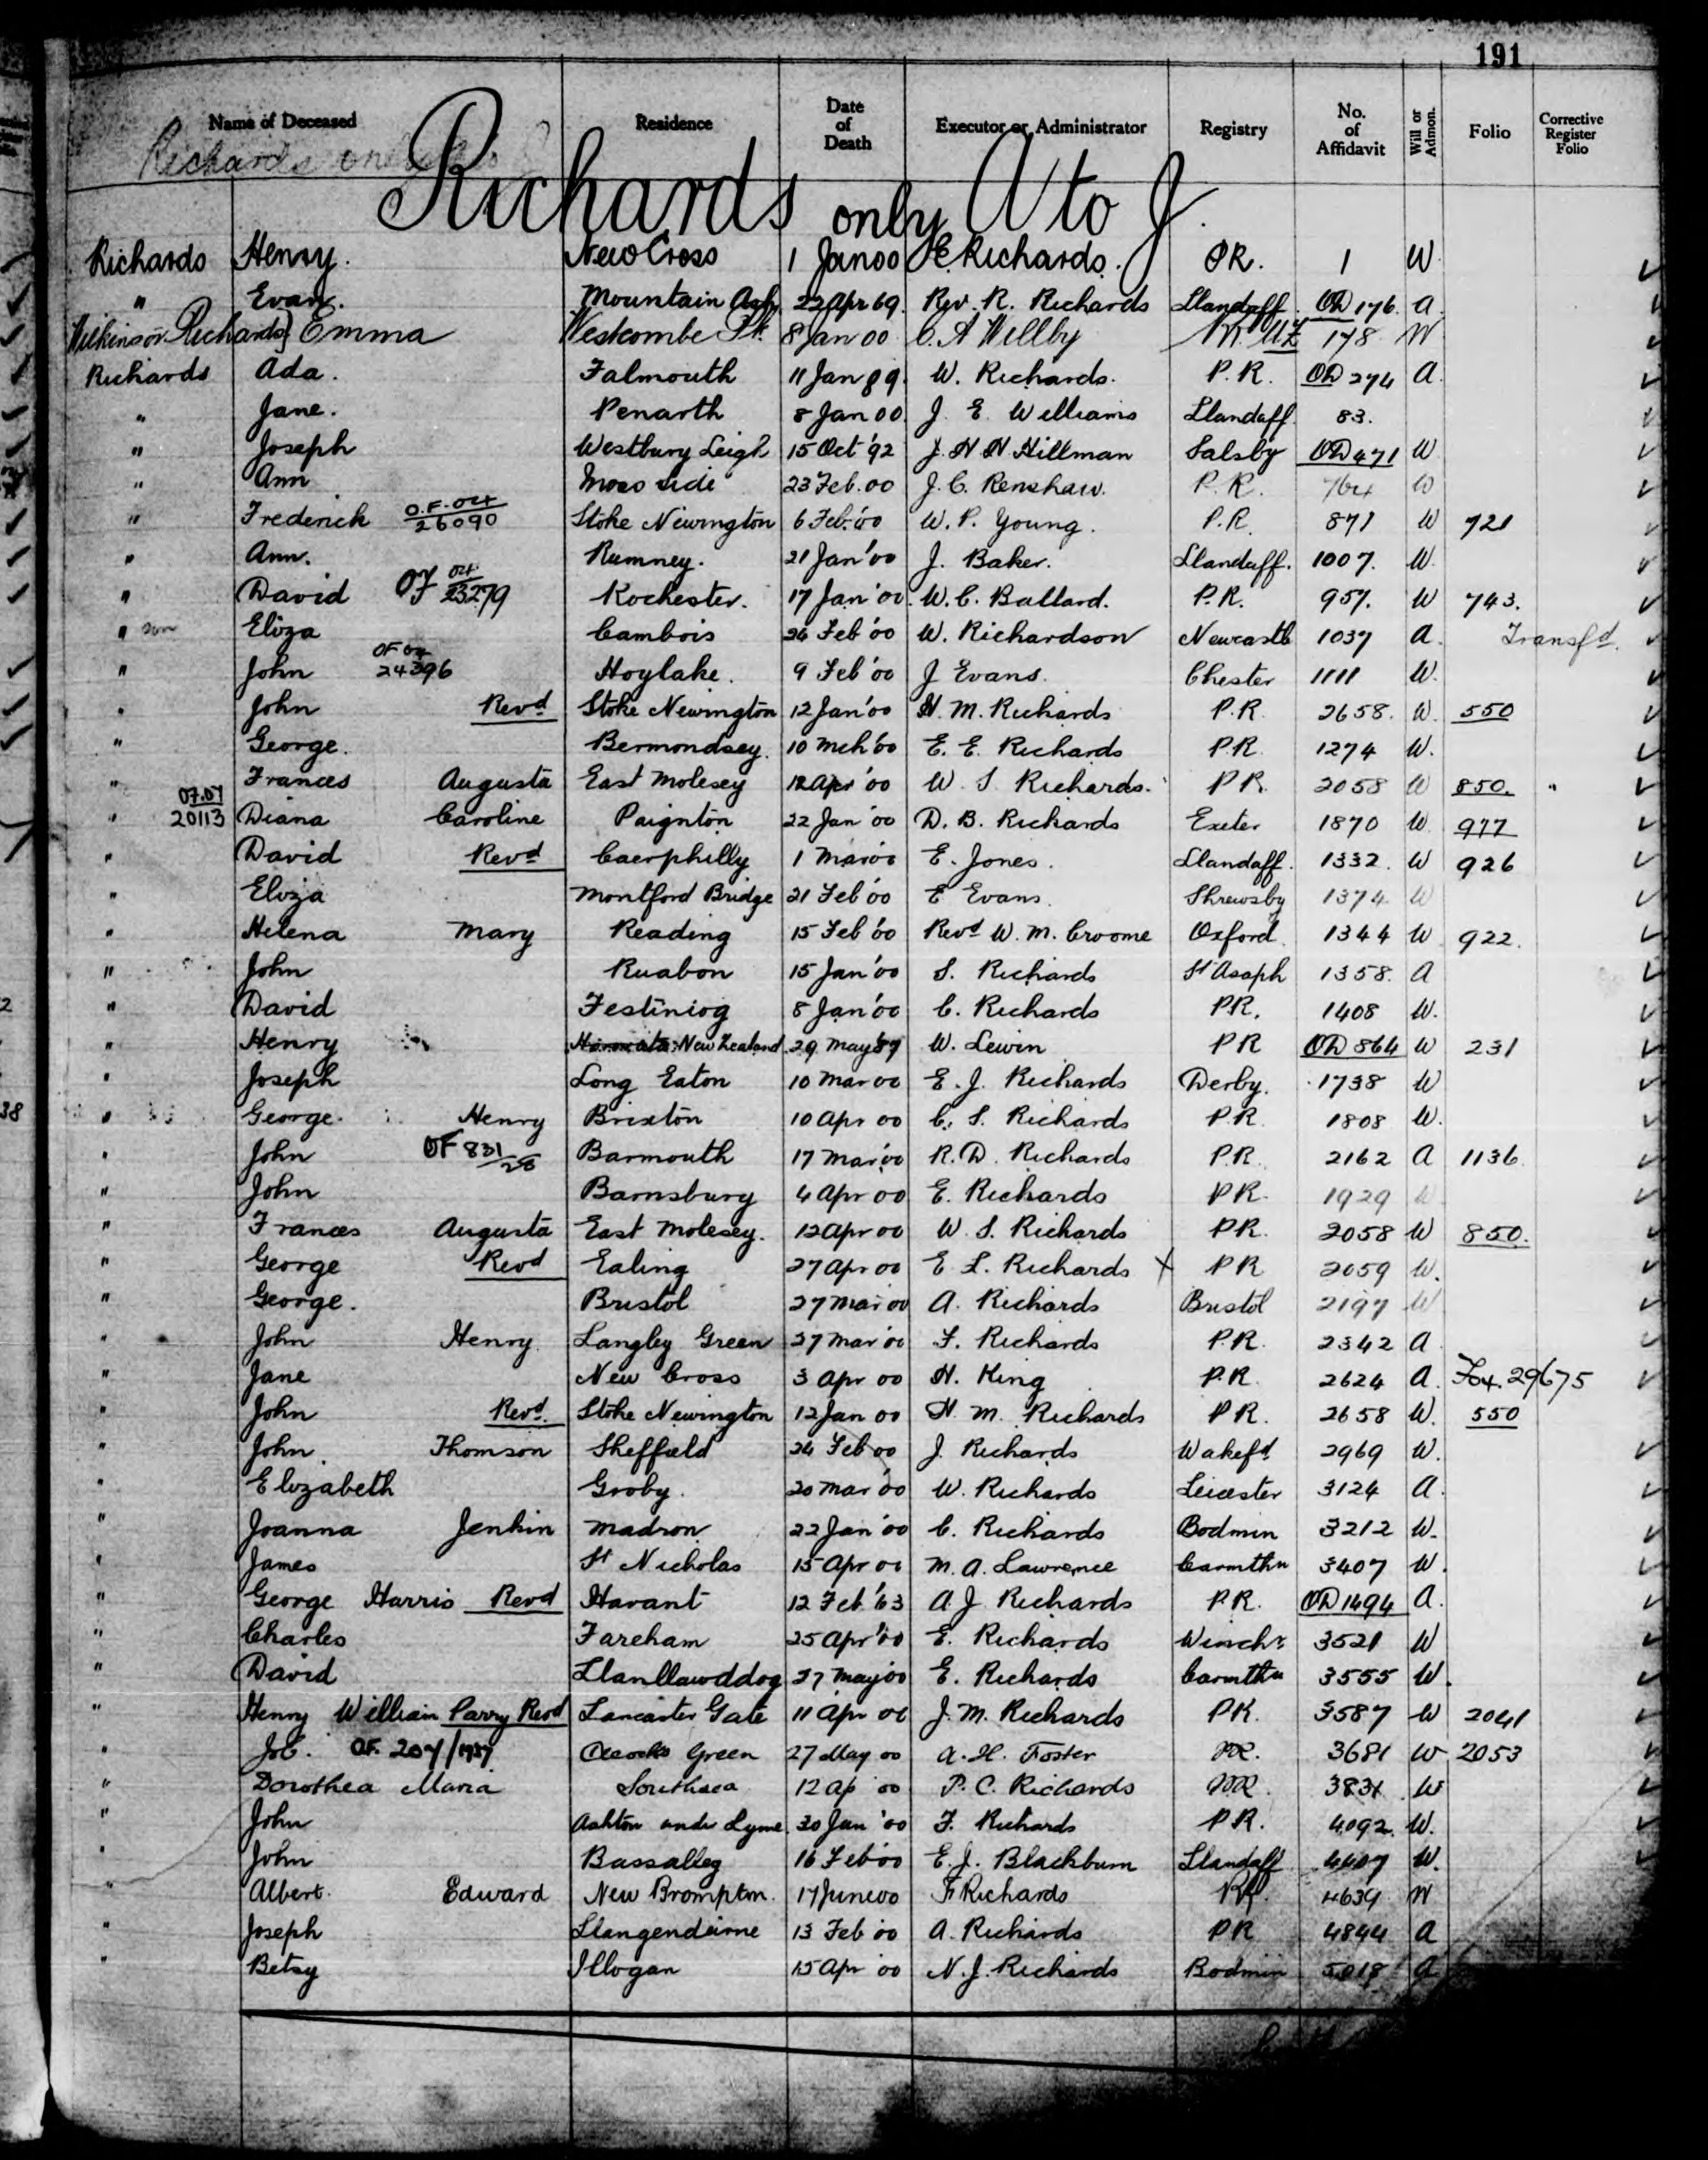 191
Name of Deceased Residence Date of Death Executor or Administrator Registry No. of Affidavit Will or Admon. Folio Corrective Register Folio
Richards only
Richards only A to J.
Richards Henry. New Cross 1 Jan 00 E. Richards. PR. 1 W
" Evan. Mountain Ash 22 Apr 69 Rev. R. Richards Llandaff OD 176 A
Wilkinson Richards} Emma Westcombe Pk. 8 Jan 00 C. A Willby 178 W
Richards Ada. Falmouth 11 Jan 89. W. Richards. P.R. OD 274 A
" Jane. Penarth 8 Jan 00 J. E. Williams Llandaff 83.
" Joseph Westbury Leigh 15 Oct '92 J. H H Hillman Salsby OD 471 W
" Ann Moss side 23 Feb. 00 J. C. Renshaw. P.R. 764 W
" Frederick O.F. 04 26090 Stoke Newington 6 Feb. '00 W. P. Young. P.R. 871 W 721
" Ann. Rumney. 21 Jan '00 J. Baker. Llandaff. 1007. W.
" David OF 04 23279 Rochester. 17 Jan '00. W. C. Ballard. P.R. 957. W 743.
" son Eliza Cambois 24 Feb '00 W. Richardson Newcastle 1037 A. Transfd.
" John OF 04 24396 Hoylake. 9 Feb '00 J Evans. Chester 1111 W.
" John Revd Stoke Newington 12 Jan '00 H. M. Richards P.R. 2658. W. 550
" George. Bermondsey. 10 Mch '00 E. E. Richards P.R. 1274 W.
" Frances Augusta East Molesey 12 Apr '00 W. S. Richards. P R. 2058 W 850. "
" 07.07 20113 Diana Caroline Paignton 22 Jan '00 D. B. Richards Exeter 1870 W. 977
" David Revd Caerphilly 1 Mar '00 E. Jones. Llandaff. 1332. W 926
" Eliza Montford Bridge 21 Feb '00 E Evans. Shrewsby 1374 W
" Helena Mary Reading 15 Feb '00 Revd W. M. Croome Oxford 1344 W 922.
" John Ruabon 15 Jan '00 S. Richards St Asaph 1358. A
" David Festiniog 8 Jan '00 C. Richards PR. 1408 W.
" Henry New Zealand 29 May 87 W. Lewin PR OD 864 W 231
" Joseph Long Eaton 10 Mar 00 E. J. Richards Derby. 1738 W
" George. Henry Brixton 10 Apr 00 C. S. Richards P.R. 1808 W.
" John OF 831/28 Barmouth 17 Mar '00 R. D. Richards P.R. 2162 A 1136
" John Barnsbury 4 Apr 00 E. Richards P.R. 1929 W
" Frances Augusta East Molesey. 12 Apr 00 W. S. Richards P.R. 2058 W 850.
" George Revd Ealing 27 Apr 00 E L. Richards X P.R 2059 W.
" George. Bristol 27 Mar 00 A. Richards Bristol 2197 W
" John Henry. Langley Green 27 Mar '00 F. Richards P.R. 2342 A
" Jane New Cross 3 Apr 00 H. King P.R. 2624 A. Fox. 29675
" John Revd. Stoke Newington 12 Jan 00 H. M. Richards P.R. 2658 W. 550
" John. Thomson Sheffield 24 Feb 00 J. Richards Wakefd 2969 W.
" Elizabeth Groby. 20 Mar '00 W. Richards Leicester 3124 A.
" Joanna Jenkin Madron 22 Jan '00 C. Richards Bodmin 3212 W.
" James St Nicholas 15 Apr 00 M. A. Lawrence Carmthn 3407 W.
" George Harris Revd Havant 12 Feb '63 A J. Richards P.R. OD 1494 A.
" Charles Fareham 25 Apr '00 E. Richards Winchr 3521 W
" David Llanllawddog 27 May '00 E. Richards Carmthn 3555 W.
" Henry William Parry Revd Lancaster Gate 11 Apr 00 J. M. Richards P.R. 3587 W 2041
" Job. OF. 207/1937 Acocks Green 27 May 00 A. H. Foster P.R. 3681 W 2053
" Dorothea Maria Southsea 12 Ap 00 P. C. Richards P.R. 3831 W
" John Ashton under Lyne. 30 Jan '00 F. Richards P.R. 4092. W.
" John Bassalleg 16 Feb '00 E. J. Blackburn Llandaff 4407 W.
" Albert. Edward New Brompton. 17 June 00 F Richards P.R. 4639 W
" Joseph Llangendeirne 13 Feb '00 A. Richards P R 4844 A
" Betsy Illogan 15 Apr '00 N. J. Richards Bodmin 5018 A